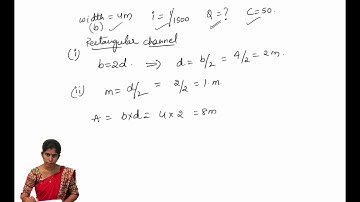 width = 4m i = 1/1500 Q = ? C = 50.
(b)
Rectangular channel
(i) b = 2d. ⇒ d = b/2 = 4/2 = 2m.
(ii) m = d/2 = 2/2 = 1.m
A = b×d = 4 × 2 = 8m